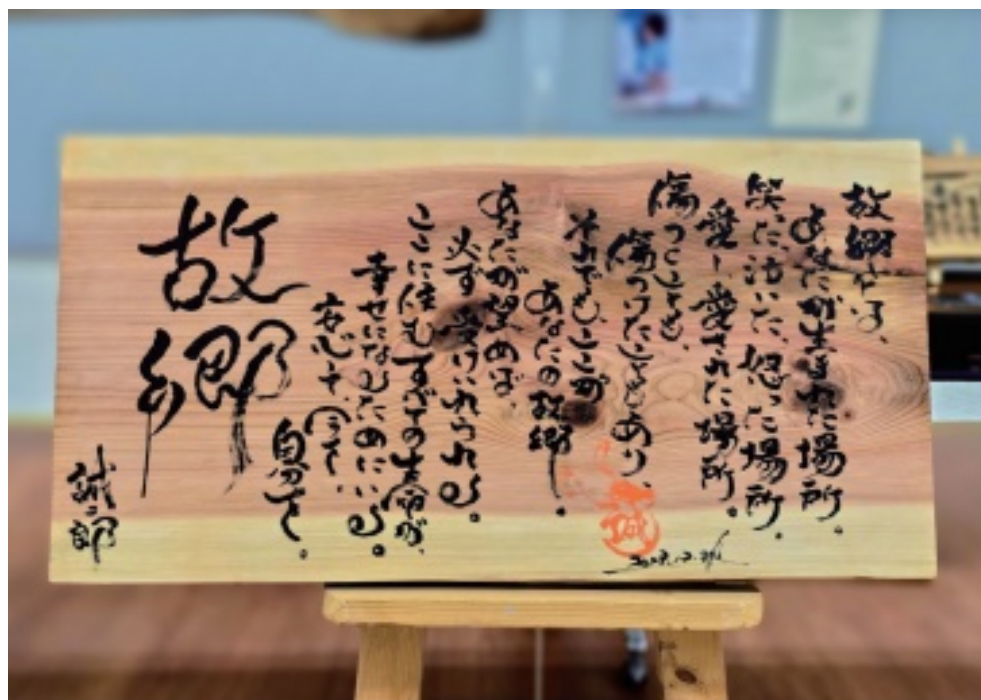 故郷とは、
あなたが生まれた場所。
笑った、泣いた、怒った場所。
愛し、愛された場所。
傷つくことも、
傷つけたこともあり、
それでもここが
あなたの故郷。
あなたが望めば
必ず受けいれられる。
ここに住むすべての生命が、
幸せになるためにいる。
安心
自分で。
故郷
誠二郎